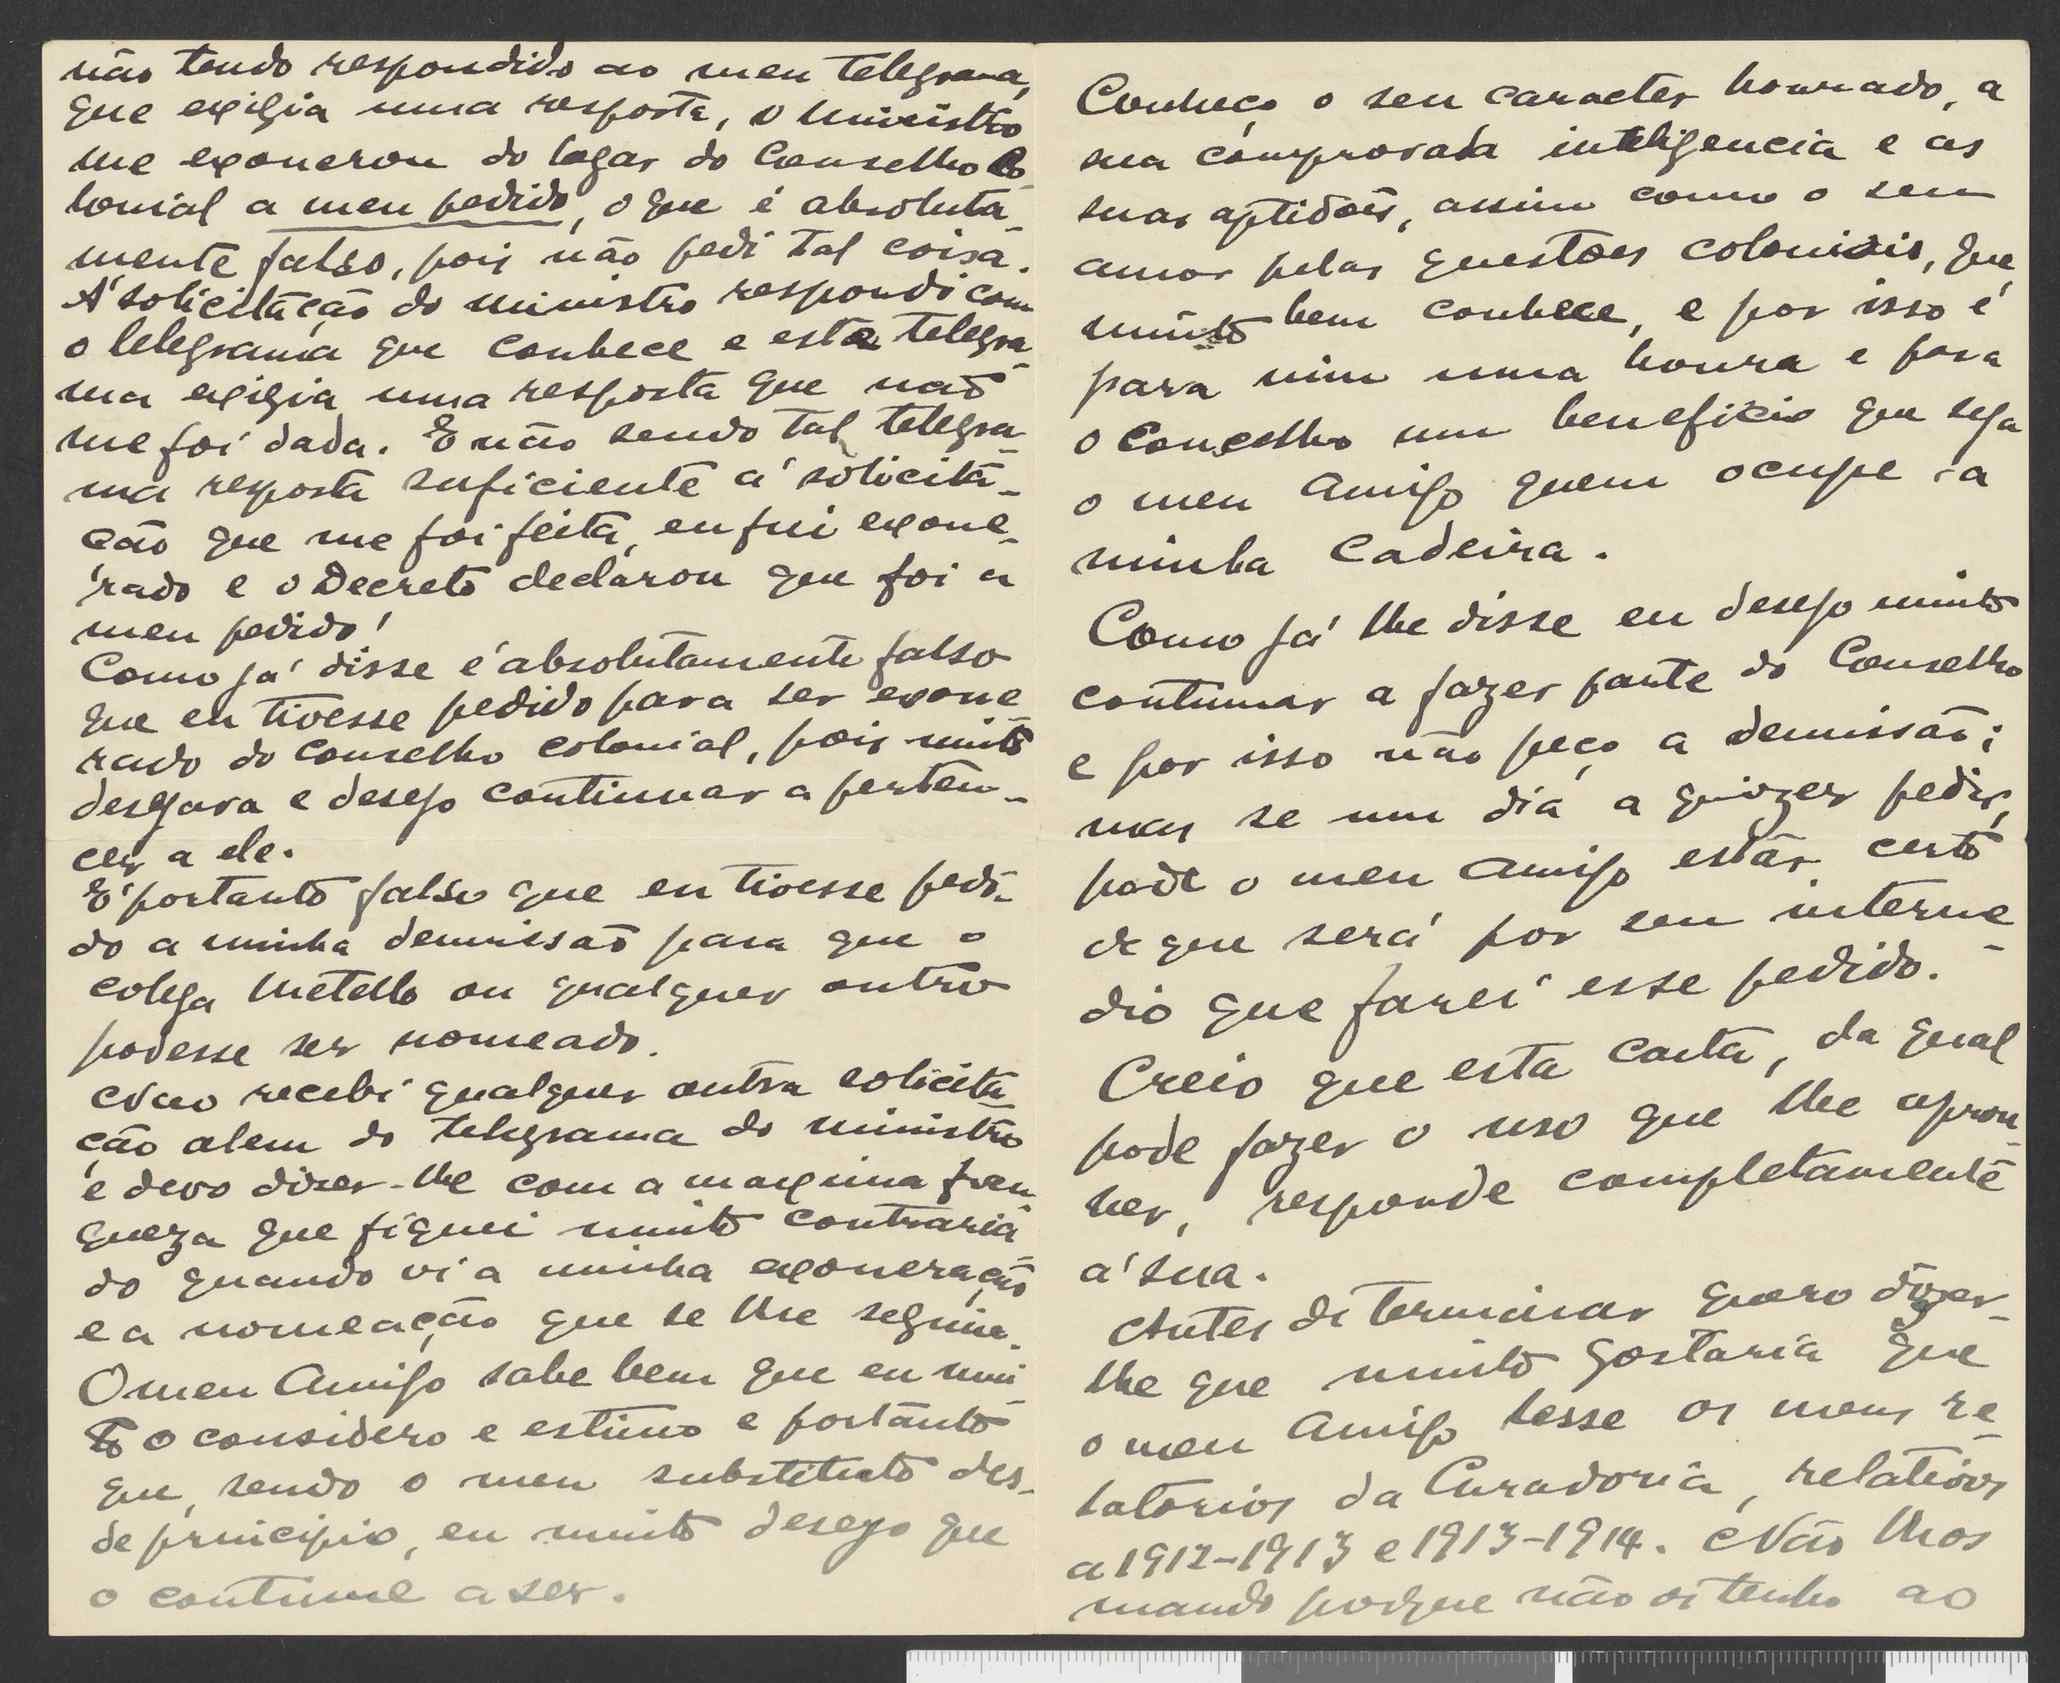 não tendo respondido ao meu telegrama,
que exigia uma resposta, o ministro
me exonerou do logar do Conselho Co-
lonial a meu pedido, o que é absoluta-
mente falso, pois não pedi tal coisa.
Á solicitação do ministro respondi com
o telegrama que conhece e este telegra-
ma exigia uma resposta que não
me foi dada. E não sendo tal telegra-
ma resposta suficiente á solicita-
ção que me foi feita, eu fui exone-
rado e o Decreto declarou que foi a
meu pedido!
Como já disse é absolutamente falso
que eu tivesse pedido para ser exone-
rado do Conselho colonial, pois muito
desejava e desejo continuar a perten-
cer a ele.
É portanto falso que eu tivesse pedi-
do a minha demissão para que o
colega Metello ou qualquer outro
podesse ser nomeado.
Não recebi qualquer outra solicita-
ção alem do telegrama do ministro
e devo dizer-lhe com a maxima fran-
queza que fiquei muito contraria-
do quando vi a minha exoneração
e a nomeação que se lhe seguiu.
O meu Amigo sabe bem que eu mui-
to o considero e estimo e portanto
que, sendo o meu substituto des-
de principio, eu muito desejo que
o continue a ser.
Conheço o seu caracter honrado, a
sua comprovada inteligencia e as
suas aptidões, assim como o seu
amor pelas questões coloniais, que
muito bem conhece, e por isso é
para mim uma honra e para
o Concelho um beneficio que seja
o meu Amigo quem ocupe a
minha Cadeira.
Como já lhe disse eu desejo muito
continuar a fazer parte do Conselho
e por isso não peço a demissão;
mas se um dia a quizer pedir,
pode o meu Amigo estar certo
de que será por seu interme-
dio que farei esse pedido.
Creio que esta carta, da qual
pode fazer o uso que lhe aprou-
ver, responde completamente
á sua.
Antes de terminar quero dizer-
lhe que muito gostaria que
o meu Amigo lesse os meus re-
latorios da Curadoria, relativos
a 1912-1913 e 1913-1914. Não lhos
mando porque não os tenho ao